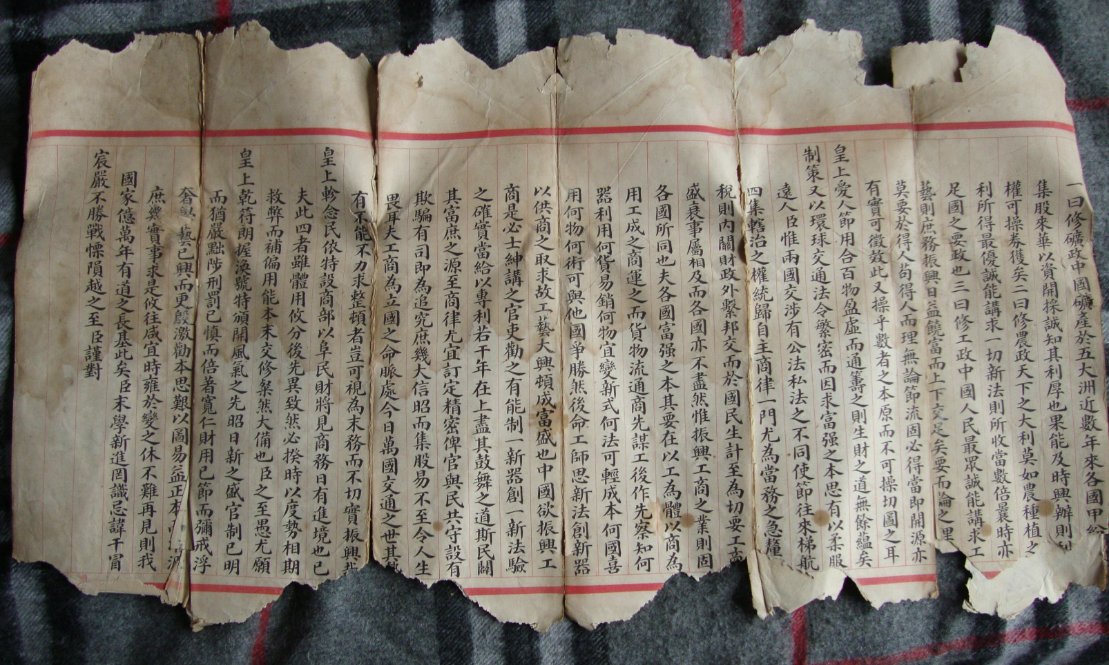 一曰修礦政中國礦產於五大洲近數年來各國甲紛
集股來華以資開採誠知其利厚也果能及時興辦則
權可操券獲矣二曰修農政天下之大利莫如農種植之
利所得最優誠能講求一切新法則所收當數倍曩時亦
足國之要政也三曰修工政中國人民最眾誠能講求工
藝則庶務振興日益饒富而上下交足矣要而論之里
莫要於得人苟得人而理無論節流固必得當即開源亦
有實可徵效此又操乎數者之本原而不可操切國之耳
皇上愛人節用合百物盈虛而通籌之則生財之道無餘蘊矣
制策又以環球交通法令繁密而因求富强之本思有以柔服
遠人臣惟兩國交涉有公法私法之不同使節往來梯航
四集轄治之權統歸自主商律一門尤為當務之急
稅則內關財政外繫邦交而於國民生計至為切要工商
盛衰事屬相及而各國亦不盡然惟振興工商之業則固
各國所同也夫各國富强之本其要在以工為體以商為
用工成之商運之而貨物流通商先謀工後作先察知何
器利用何貨易銷何物宜變新式何法可輕成本何國喜
用何物何術可與他國爭勝然後命工師思新法創新器
以供商之取求故工藝大興頓成富盛也中國欲振興工
商是必士紳講之官吏勸之有能制一新器創一新法驗
之確實當給以專利若干年在上盡其鼓舞之道斯民闢
其富庶之源至商律尤宜訂定精密俾官與民共守設有
欺騙有司即為追究庶幾大信昭而集股易不至令人生
畏耳夫工商為立國之命脈處今日萬國交通之世其
有不能不力求整頓者豈可視為末務而不切實振興
皇上軫念民依特設商部以阜民財將見商務日有進境也已
夫此四者雖體用攸分後先異致然必揆時以度勢相期
救弊而補偏用能本末交修粲然大備也臣之至愚尤願
皇上乾符朗握渙號特頒開風氣之先昭日新之盛官制已明
而猶嚴黜陟刑罰已慎而倍著寬仁財用已節而彌戒浮
奢工藝已興而更殷激勸本思艱以圖易益正本
庶幾實事求是攸往咸宜時雍於變之休不難再見則我
國家億萬年有道之長基此矣臣末學新進罔識忌諱干冒
宸嚴不勝戰慄隕越之至臣謹對